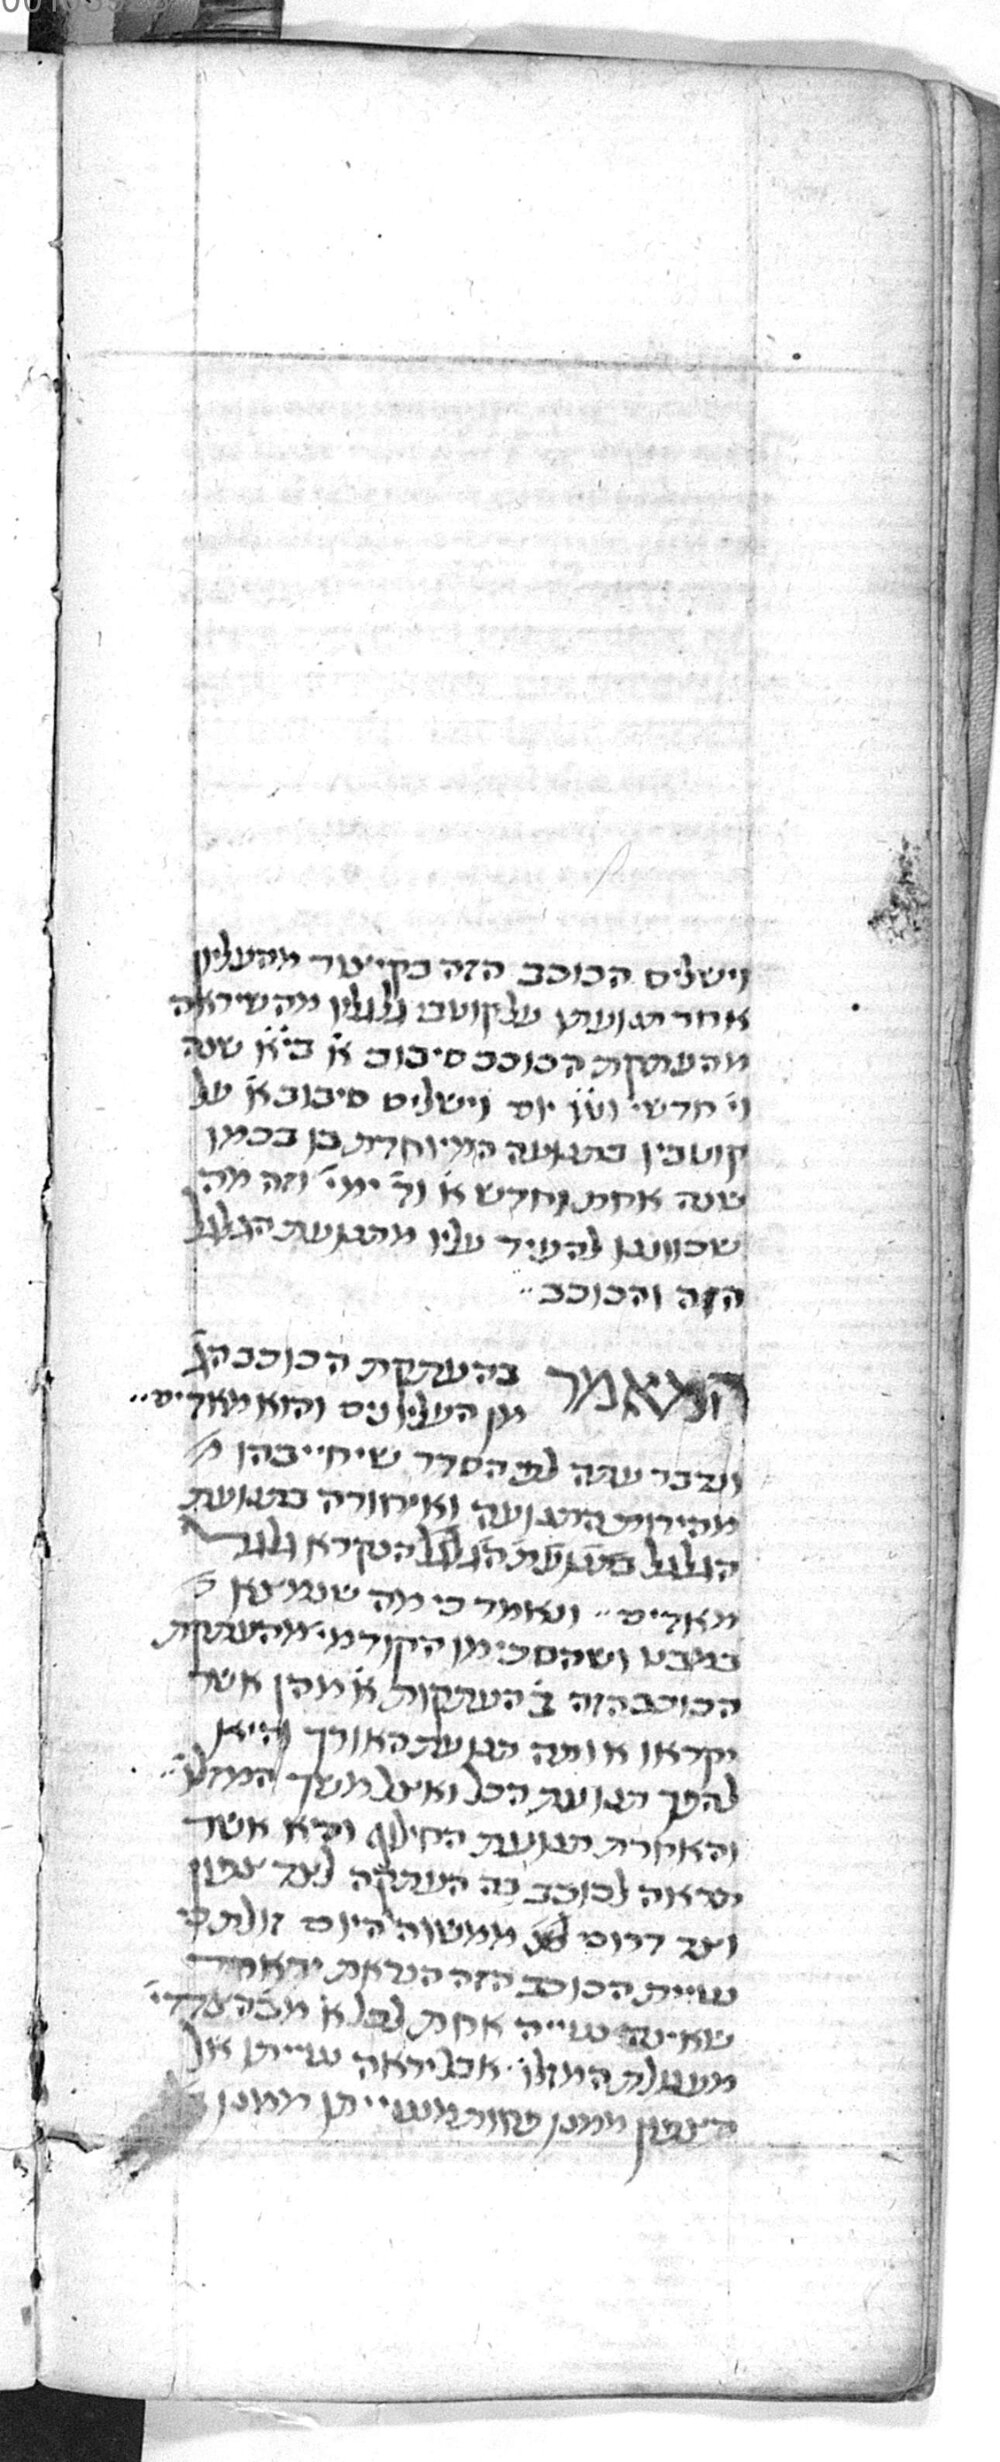 וישלים הכוכב הזה בקיצור מהעליון
אחר תנועתו על קוטבי גלגלו מה שיראה
מהעתקת הכוכב סיבוב א' בי"א שנה
וי' חדשי' וט"ו יום וישלים סיבוב א' על
קוטביו בתנועה המיוחדת בו בכמו
שנה אחת וחדש א' וד' ימי' וזה מה
שכווננו להעיר עליו מתנועת הגלגל
הזה והכוכב··
המאמר בהעתקת הכוכב הג'
מן העליונים והוא מאדים··
ונדבר עתה לפי הסדר שיחייבהו
מהירות התנועה ואיחורה בתנועת
הגלגל הנקרא גלגל
מאדים·· ונאמר כי מה שנמצא
במבט ושהסכימו הקודמי' מהעתקת
הכוכב הזה ב' העתקות א' מהן אשר
יקראו אותה תנועת האורך והיא
להפך תנועת הכל ואצל משך המזלו'··
והאחרת תנועת החילוף והיא אשר
יראה לכוכב בה העתקה לצד צפון
וצד דרום ממשוה היום זולת כי
נטיית הכוכב הזה הנראת יראה
שאינה נטייה אחת לכל א' מב' הצדדי'
מעגלת המזלו' אבל יראה נטייתו אל
הצפון ממנו פחות מנטייתו ממנו